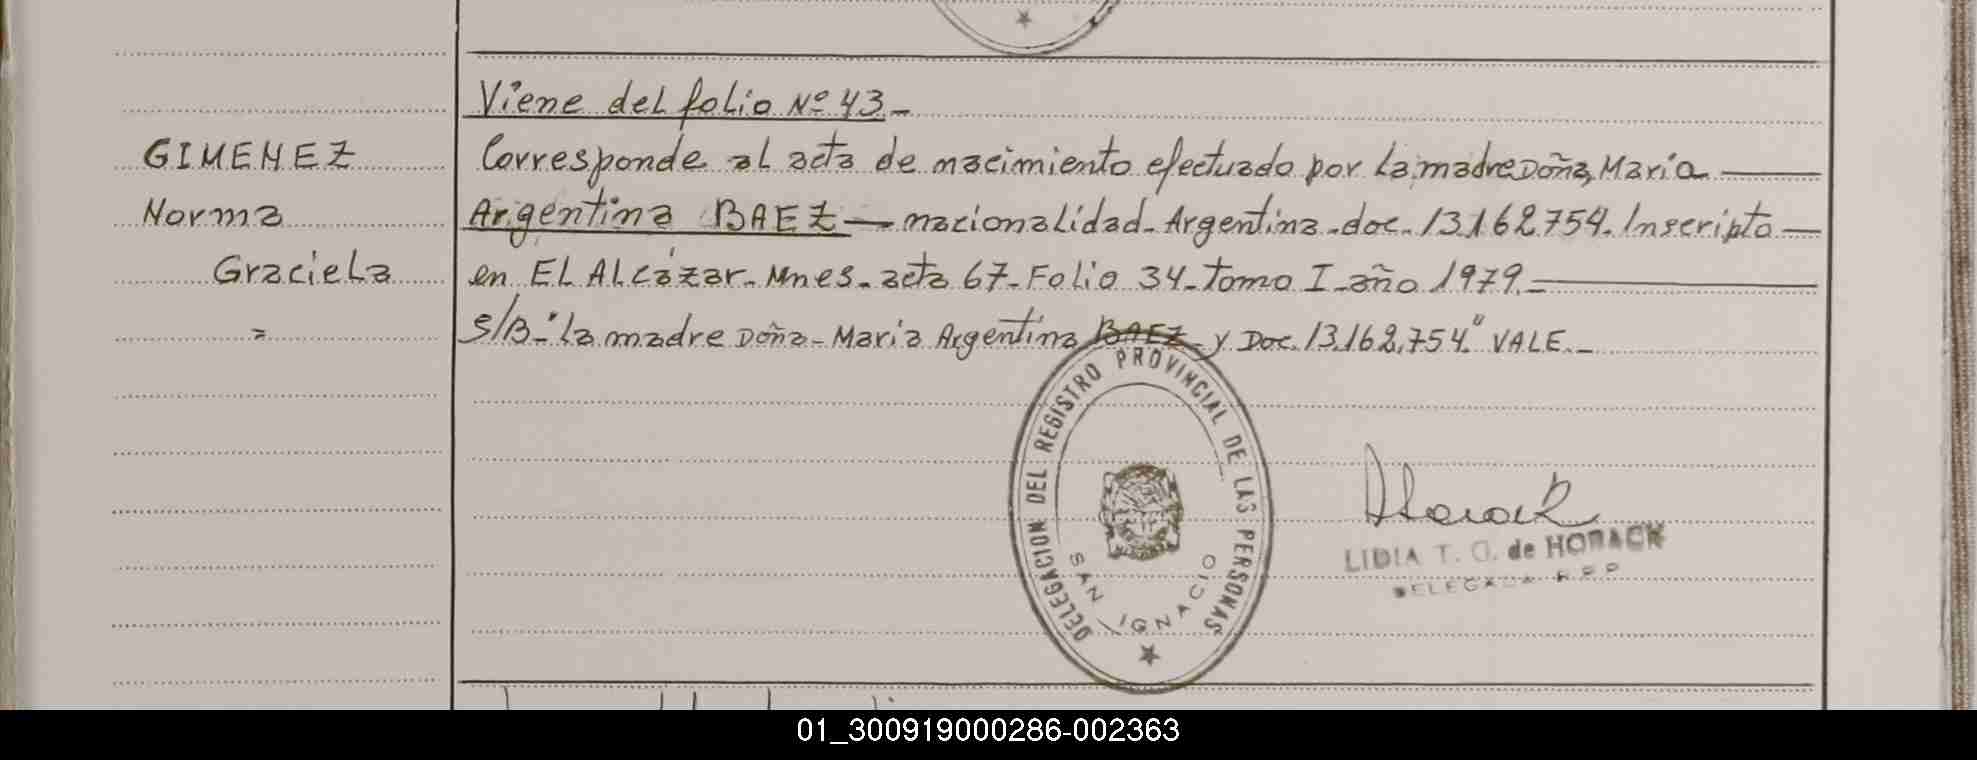 Viene del folio Nº 43_
GIMENEZ
Norma
Graciela
=
Corresponde al acta de nacimiento efectuado por la madre Doña, María
Argentina BAEZ — nacionalidad_ Argentina_doc_13.162.754. Inscripto —
en EL ALCázar_Mnes_acta 67_Folio 34_tomo I_año 1979._
S/B_"la madre Doña_María Argentina BAEZ_y Doc. 13.162.754." VALE._
DELEGACION DEL REGISTRO PROVINCIAL DE LAS PERSONAS
SAN IGNACIO
LIDIA T. G. de HORACK
DELEGADA R P P
01_300919000286-002363